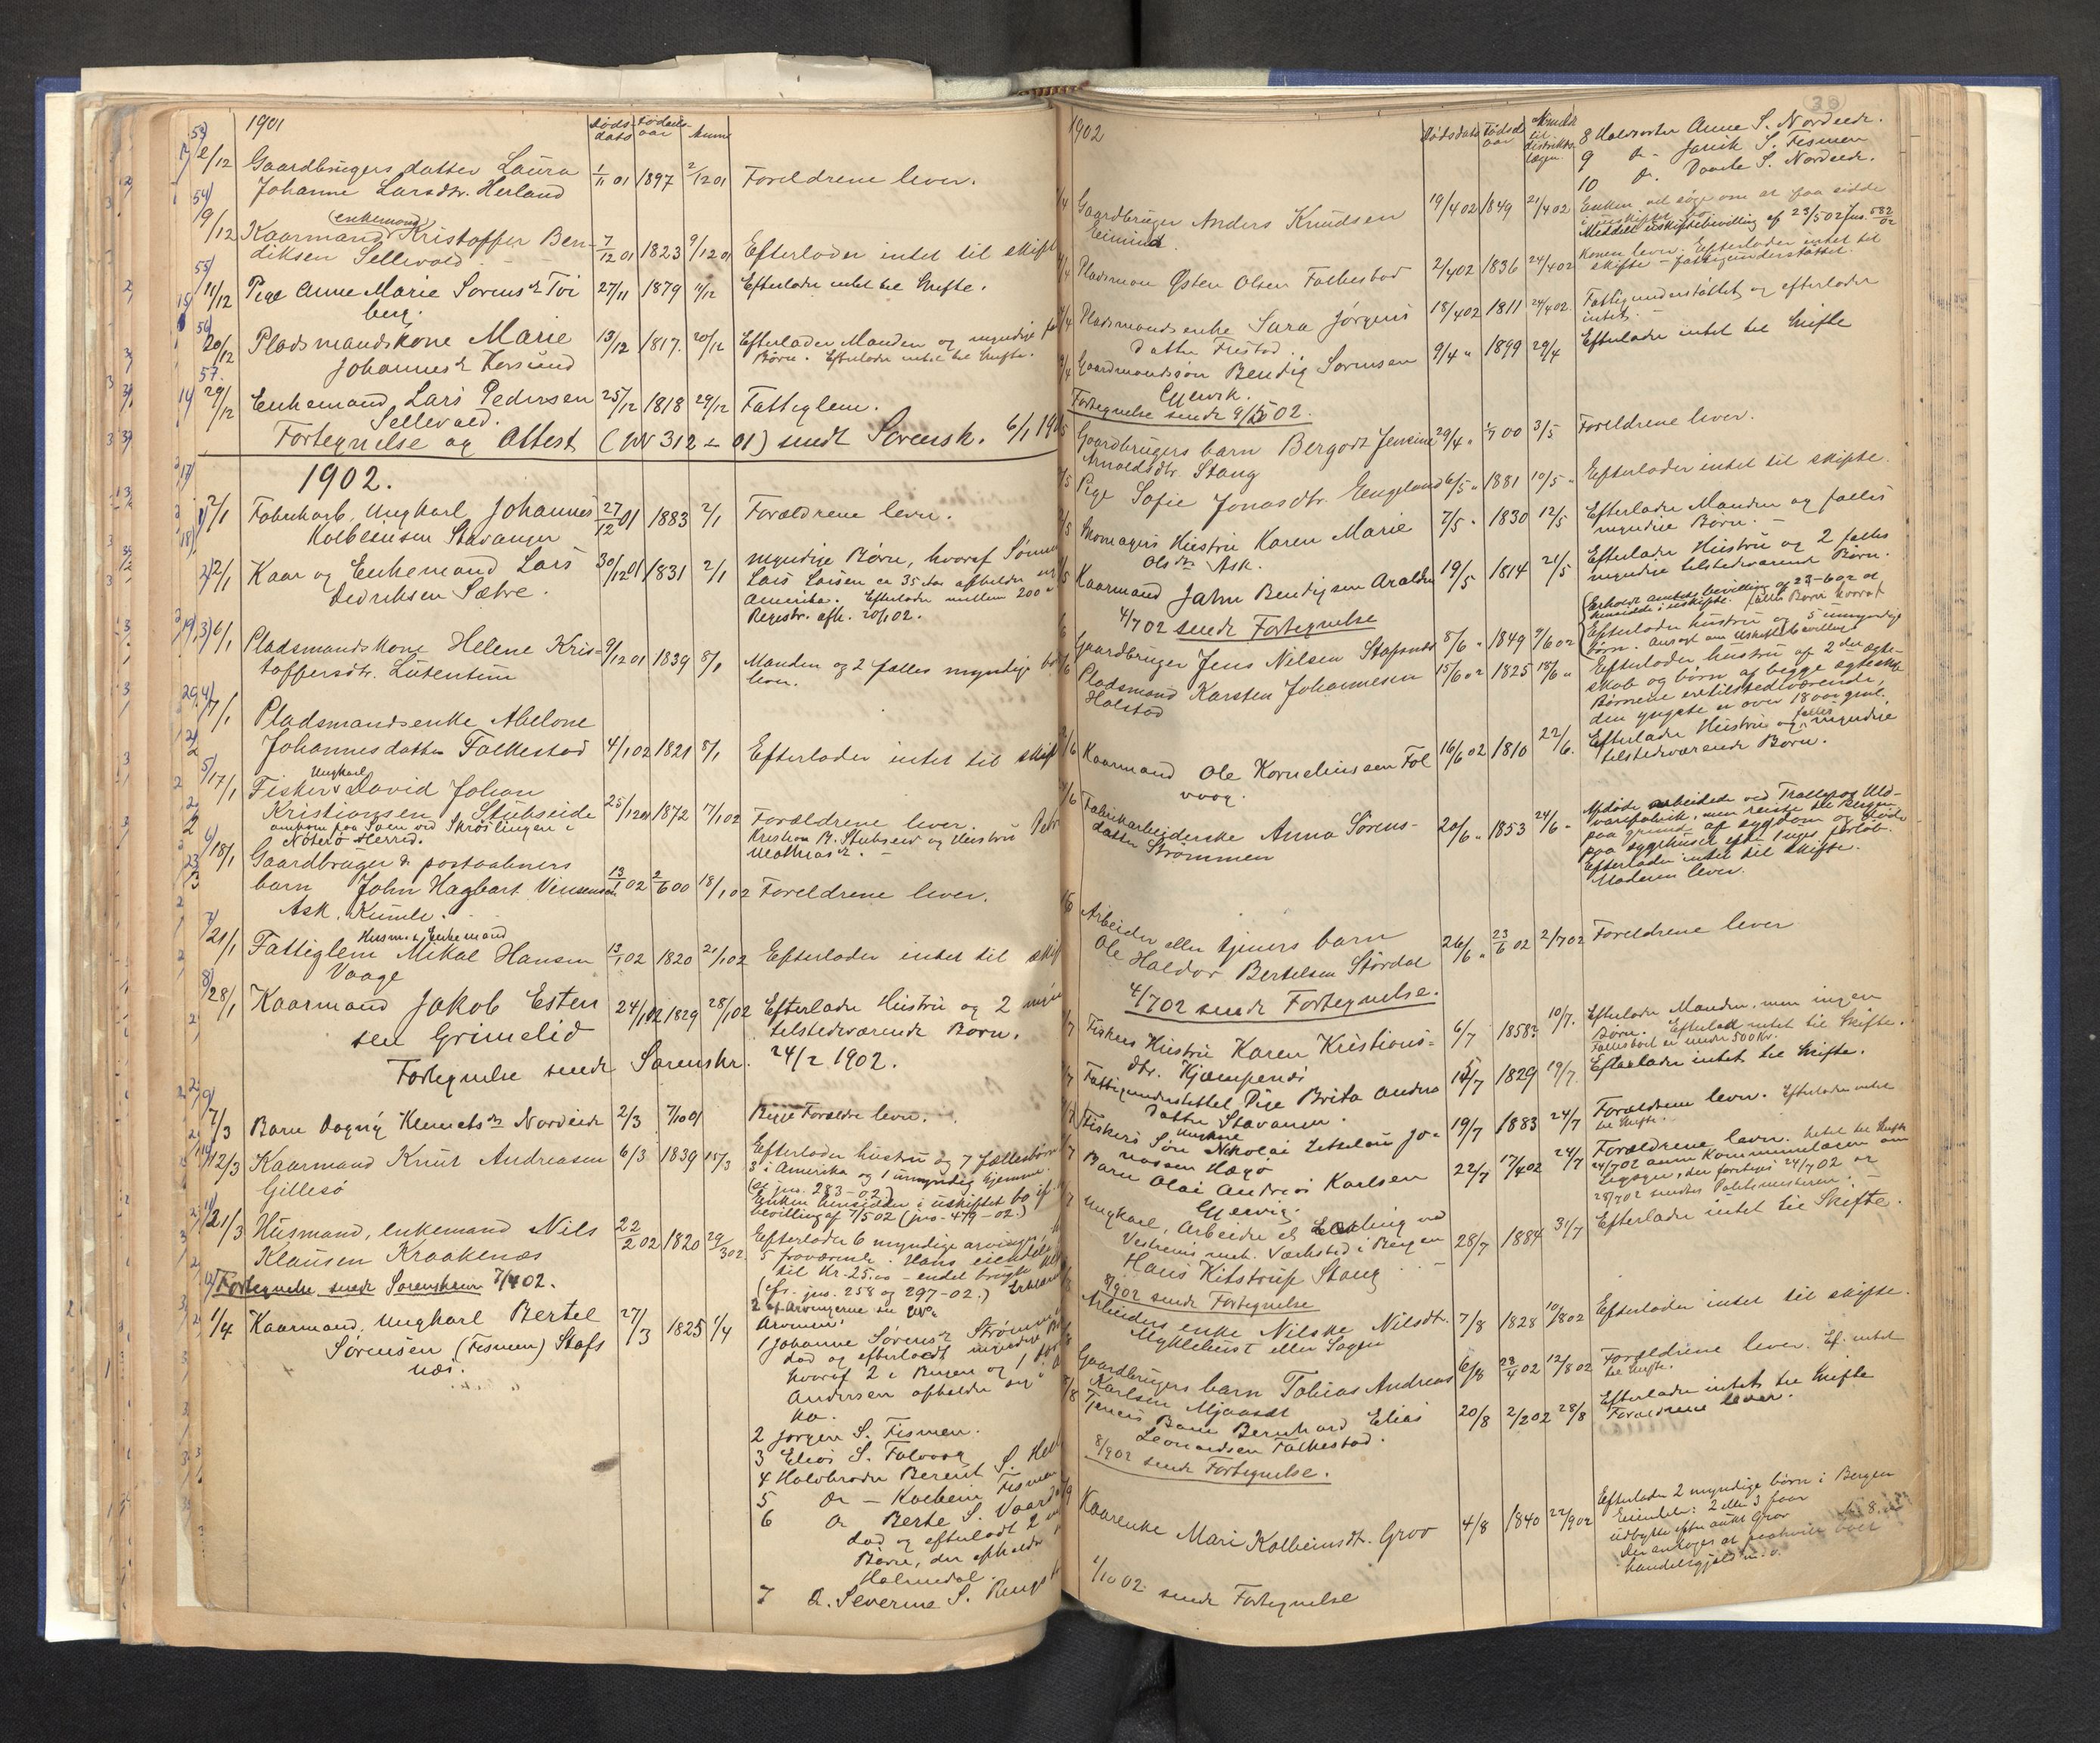 1901
Døds-
dato
Fødsels-
aar
Anm
53
2/12
Gaardbrugers datter Laura
Johanne Larsdtr. Herland
1/11 01
1897
2/12 01
Foreldrene lever.
54
9/12
(enkemand)
Kaarmand Kristoffer Ben-
diksen Sellevold
7/12 01
1823
9/12 01
Efterlader intet til skift
55
11/12
Pige Anne Marie Sørensdr Tvi
berg.
27/11
1879
11/12
Efterlader intet til Skifte.
56
20/12
Pladsmandskone Marie
Johannesdr Korssund
13/12
1817.
20/12
Efterlader Manden og myndige
Børn. Efterlader intet til Skifte.
57.
29/12
Enkemand Lars Pedersen
Sellevold.
25/12
1818
29/12
Fattiglem.
Fortegnelse og Attest (JN 312 - 01) sendt Sorensk. 6/1 19
1902.
1) 2/1
Fabrikarb. Ungkarl Johannes
Kolbeinsen Stavanger
27/12 01
1883
2/1
Forældrene lever.
2) 2/1
Kaar og Enkemand Lars
Didriksen Sætre.
30/12 01
1831
2/1
myndige Børn, hvoraf Sønnen
Lars Larsen ca 35 Aar opholder
Amerika. Efterlader mellem 200
Registr. afh. 20/1 02.
3) 6/1
Pladsmandskone Helene Kris-
toffersdtr. Lutentun
9/12 01
1839
8/1
Manden og 2 fælles myndige
lever.
4/ 7/1
Pladsmandsenke Abelone
Johannesdatter Falkestad
4/1 02
1821
8/1
Efterlader intet til skift
5/ 17/1
Ungkarl
Fisker David Johan
Kristiansen Stubseide
omkom paa Søen ved Skrøslingen i
Noterø Herred.
25/12 01
1872
17/1 02
Forældrene lever. Petr
Kristian B. Stubseid og Hustru
Mathiasdr. -
6/ 18/1
Gaardbruger & postaabners
barn John Hagbart Vinsensen
Ask, Kumle.
13/1 02
2/6 00
18/1 02
Foreldrene lever.
7/ 21/1
Husm. & Enkemand
Fattiglem Mikal Hansen
Vaage
13/1 02
1820
21/1 02
Efterlader intet til skif
8/ 28/1
Kaarmand Jakob Esten
sen Grimelid
24/1 02
1829
28/1 02
Efterlader Hustru og 2 mynd
tilstedværende Børn.
Fortegnelse sendt Sorenskr. 24/2 1902.
9/ 7/3
Barn Dagny Klemetsdr Nordeide
2/3
7/10 01
Begge Forældre lever.
12/3
Kaarmand Knut Andreasen
Gillesø
6/3
1839
15/3
Efterlader hustru og 7 fællesbørn
3 i Amerika og 1 umyndig hjemme.
(cf. jns. 283-02)
Enken hensidder i uskiftet bo if.
bevilling af 7/5 02 (jns. 479-02.)
21/3
Husmand, enkemand Nils
Klausen Kraakenæs
22/2 02
1820
29/3 02
Efterlader 6 myndige arvinger,
5 fraværende. Hans eiendele
til Kr. 25.00 - endel brugte
(cfr. jns. 258 og 297-02.)
Fortegnelse sendt Sorenskrim 7/4 02.
1/4
Kaarmand, Ungkarl Bertel
Sørensen (Fismen) Stafs
næs.
27/3
1825
1/4
Arvinger:
1 Johanne Sørensdr Strømmen
død og efterladt myndige
hvoraf 2 i Bergen og 1
Andersen opholder sig
2 Jørgen S. Fismen.
3 Elias S. Folvaag
4 Halvbroder Berent S. Hell
5 Do - Kolbein Fismen
6 Do Berte S. Vaard
død og efterladt 2
Børn, der opholder
Holmedal.
7 Do. Severine S. Rengst
1902
Dødsdato
Fødsels
aar
Anmeldt
til
distrikts-
lægen
30
8 Halvsøster Anne S. Nordeide.
9 do - Jarik S. Fismen
10 do. Dorte S. Nordeide.
Gaardbruger Anders Knudsen
Eimind.
19/4 02
1849
21/4 02
Enken vil søge om at faa sidde
i uskiftet bo
Meddelt uskiftebevilling af 23/5 02 Jns. 582/02
Pladsman Østen Olsen Falkestad
2/4 02
1836
24/4 02
Konen lever. Efterlader intet til
skifte - fattigunderstøttet.
Pladsmandsenke Sara Jørgens
datter Frestad.
18/4 02
1811
24/4 02.
Fattigunderstøttet og efterlader
intet.
Gaardmandssøn Bendig Sørensen
Gjervik.
9/4 "
1899
29/4
Efterlader intet til Skifte
Fortegnelse sendt 9/5 02.
Gaardbrugers barn Bergodt Jensine
Arnoldsdtr. Stang
29/4 "
1/7 00
3/5
Foreldrene lever.
Pige Sofie Jonasdtr. Engeland
6/5 "
1881
10/5 "
Efterlader intet til skifte.
Skomagers Hustru Karen Marie
Olsdr Ask.
7/5 "
1830
12/5
Efterlader Manden og fælles
myndige Børn. -
Kaarmand Jahn Bendigsen Aralden
19/5
1814
21/5
Efterlader Hustru og 2 fælles
myndige tilstedværende Børn.
4/7 02 sendt Fortegnelse
Gaardbruger Jens Nilsen Stafsnæs
8/6 "
1849
9/6 02
Erholdt amtets bevilling af 23-6 02 at
hensidde i uskifte.
Efterlader hustru og 5 umyndige
børn. Ansøgt om Uskiftebevilling.
Pladsmand Karsten Johannesen
Halstad
15/6 02
1825
18/6 "
Efterlader hustru af 2den ægte-
skab og børn af begge ægteskab
Børnene er tilstedeværende,
den yngste er over 18 aar gml.
Kaarmand Ole Korneliussen Fol
vaag.
16/6 02
1810
22/6.
fælles
Efterlader Hustru og myndige
tilstedværende Børn.
Fabrikarbeiderske Anna Sørens-
datter Strømmen
20/6 "
1853
24/6 "
Afdøde arbeidede ved Trælleg. Uld-
varefabrik, men reiste til Bergen
paa grund af sygdom og døde
paa sygehuset efter 1 uges forløb.
Efterlader intet til skifte.
Moderen lever.
Arbeider eller tjeners barn
Ole Haldor Bertelsen Størdal
26/6 "
23/6 02
2/7 02
Foreldrene lever
4/7 02 sendt Fortegnelse.
Fiskers Hustru Karen Kristians-
dtr. Kjempenæs
6/7
1858?
10/7.
Efterlader Manden, men ingen
Børn. Efterladt intet til Skifte.
Fællesboet er under 500 Kr.
Fattigunderstøttet Pige Brita Andrea
datter Stavanen.
15/7
1829
19/7.
Efterlader intet til Skifte.
Ungkarl
Fiskers Søn Nikolai Zetteleus Jo-
nassen Hægø
19/7
1883
24/7
Forældrene lever. Efterlader intet
til Skifte.
Barn Olai Andreas Karlsen
Gjervig.
22/7
17/4 02
24/7
Forældrene lever. Intet til Skifte
24/7 02 anm Kommunelægen om
Ligsyn, der foretages 24/7 02 og
28/7 02 sendtes Politimesteren. -
Ungkarl, Arbeider ell Lærling ved
Vestrems mek. Værksted i Bergen
Hans Kitstrup Stang
28/7
1884
31/7
Efterlader intet til Skifte.
8/9 02 sendt Fortegnelse
Arbeiders enke Nilske Nilsdt.
Myklebust eller Sagen
7/8
1828
10/8 02
Efterlader intet til skifte.
Gaardbrugers barn Tobias Andreas
Karlsen Mjaasæt
6/8
28/4 02
12/8 02
Forældrene lever. Ef. intet
til Skifte.
Tjeners Barn Bernhard Elias
Leonardsen Falkestad.
20/8
2/2 02
28/8
Efterlader intet til Skifte
Forældrene lever.
8/9 02 sendt Fortegnelse.
Kaarenke Mari Kolbeinsdt. Grov
4/8
1840
22/9 02
Efterlader 2 myndige børn i Bergen
Eiendele: 2 eller 3 faar
udbytte efter
Der antages at
handelsgjæld m.v.
1/10 02. sendt Fortegnelse